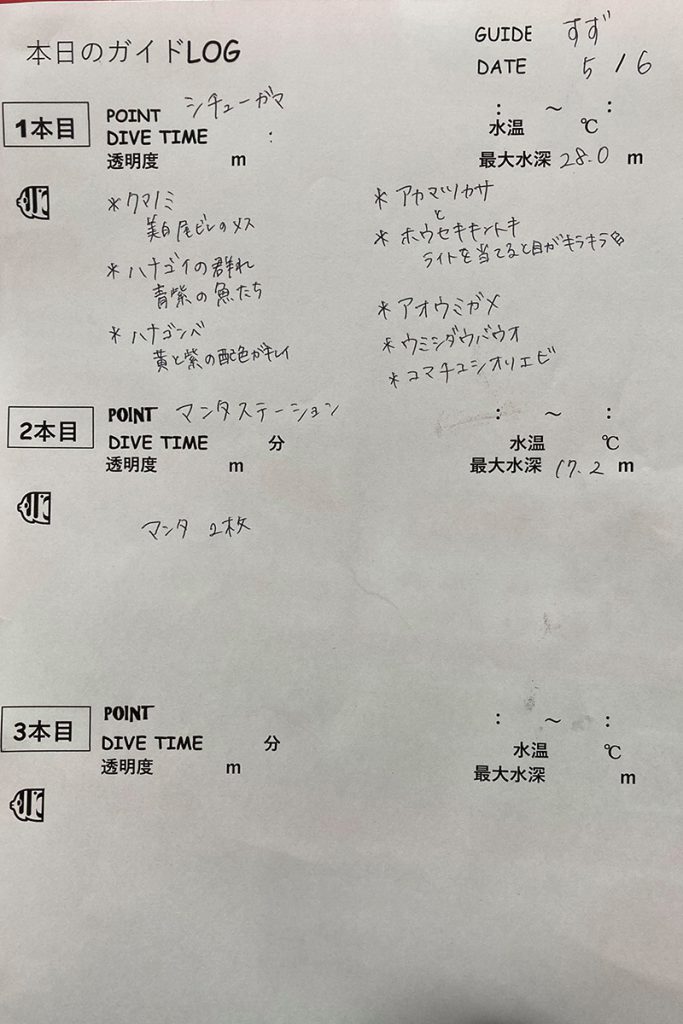 本日のガイドLOG
GUIDE すず
DATE 5/6
1本目
POINT シチューガマ
: ～ :
DIVE TIME :
水温 ℃
透明度 m
最大水深 28.0 m
*クマノミ
美白尾ビレのメス
*ハナゴイの群れ
青紫の魚たち
*ハナゴンベ
黄と紫の配色がキレイ
*アカマツカサ
と
*ホウセキキントキ
ライトを当てると目がキラキラ
*アオウミガメ
*ウミシダウバウオ
*コマチコシオリエビ
2本目
POINT マンタステーション
: ～ :
DIVE TIME 分
水温 ℃
透明度 m
最大水深 17.2 m
マンタ 2枚
3本目
POINT
: ～ :
DIVE TIME 分
水温 ℃
透明度 m
最大水深 m